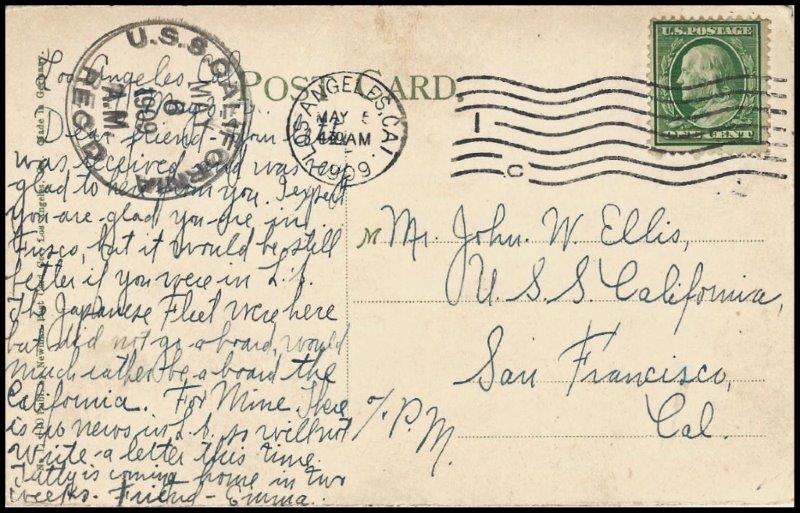 U.S.S. CALIFORNIA
MAY
6
1909
A.M.
REC'D
POST CARD.
LOS ANGELES, CAL.
MAY 5
AM
1909
1
C
U.S. POSTAGE
ONE CENT
Los Angeles Cal.
Dear friend-
was received and was
glad to hear from you. I expect
you are glad you are in
Frisco, but it would be still
better if you were in L.A.
The Japanese Fleet were here
but did not go aboard, would
much rather be aboard the
California. For Mine. There
is no news in L.A. so will not
write a letter this time.
Tutty is coming home in two
weeks. Friend - Emma.
Mr. John. W. Ellis,
U.S.S. California,
San Francisco,
Cal.
7/P.M.
Made in Germany.